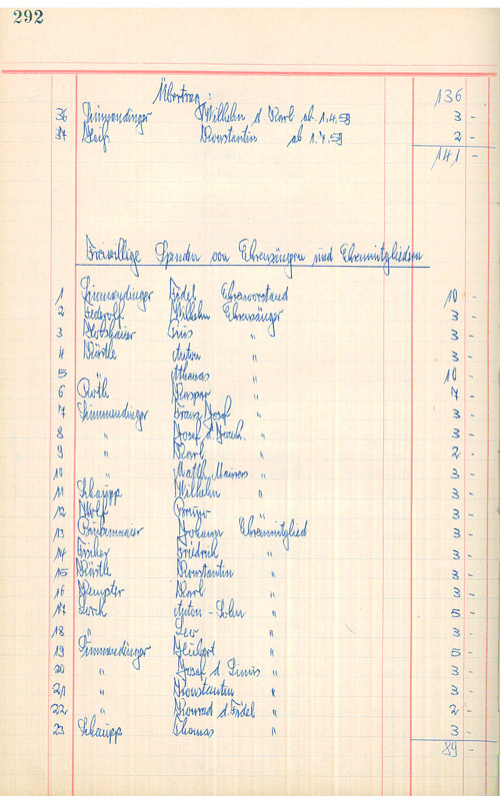 292
Übertrag: 136
36 Simmendinger Wilhelm d. Karl ab 1.4.59 3 -
37 Konstantin ab 1.7.59 2 -
141 -
Freiwillige Spenden von Ehrensängern und Ehrenmitgliedern
1 Simmendinger Fidel Ehrenvorstand 10 -
2 Federolf Wilhelm Ehrensänger 3 -
3 Pius " 3 -
4 Würtle Anton " 3 -
5 Athanas " 10 -
6 Roth Kaspar " 7 -
7 Simmendinger Franz Josef " 3 -
8 " Josef d. Joach. " 3 -
9 " Karl " 2 -
10 " Matth. " 3 -
11 Schaupp Wilhelm " 3 -
12 Wolf Bruno " 3 -
13 Johann Ehrenmitglied 3 -
14 Friedrich " 3 -
15 Würtle Konstantin " 3 -
16 Kempter Karl " 3 -
17 Lorch Anton - Sohn " 5 -
18 " Leo " 3 -
19 Simmendinger Hubert " 5 -
20 " Josef d. " 3 -
21 " Konstantin " 3 -
22 " Konrad d. Fidel " 2 -
23 Schaupp Thomas " 3 -
89 -